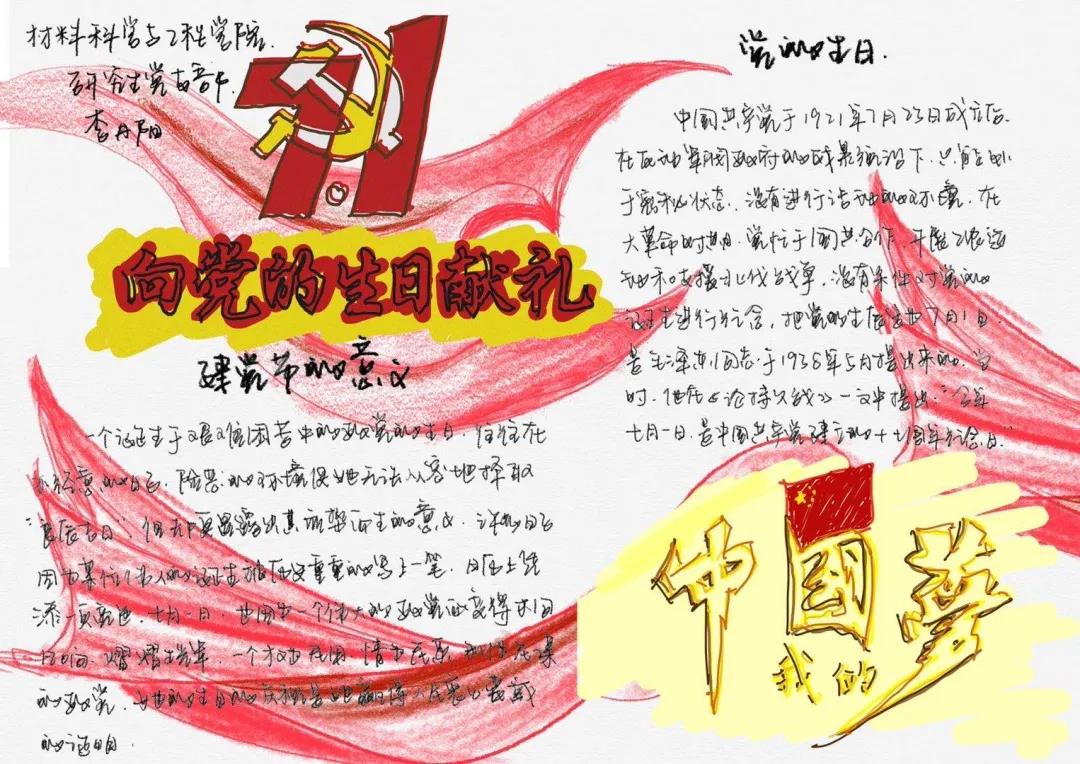 材料科学与工程学院
研究生党支部
李丹阳
7.1
向党的生日献礼
建党节的意义
一个诞生于艰难困苦中的政党的生日,往往在
不经意的日子,险恶的环境使她无法从容地择取
“良辰吉日”,但却更显露出其
的意义.
因为某位伟人的诞生被历史重重的写上一笔,日历上能
添一页.七月一日,也因为一个伟大的政党而变得不同
熠熠生辉.一个权为民用,情为民系,利为民谋
的政党,她的生日的庆祝是她赢得人民衷心爱戴
的证明.
党的生日.
中国共产党于1921年7月23日成立后.
在反动军阀政府的残暴统治下.只能处
于秘密状态,没有进行活动的环境.在
大革命时期.党忙于国共合作,开展工农运
动和支援北伐战争,没有条件对党的
诞生进行纪念,把党的生日定为7月1日.
是毛泽东同志于1938年5月提出来的.当
时.他在《论持久战》一文中提出:“今年
七月一日.是中国共产党建立的十七周年纪念日”
中國夢
我的